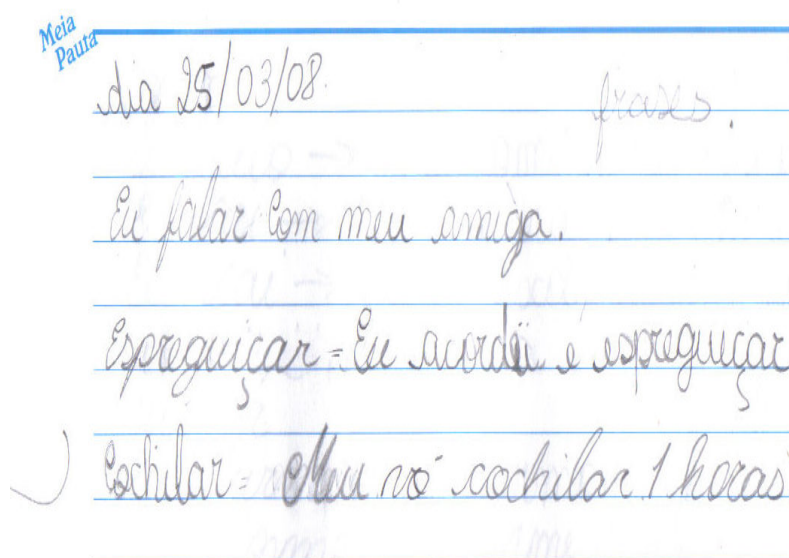 Meia
Pauta
dia 25/03/08.
frases.
Eu falar com meu amiga.
Espreguiçar = Eu acordei e espreguiçar
Cochilar = Meu vó cochilar 1 horas